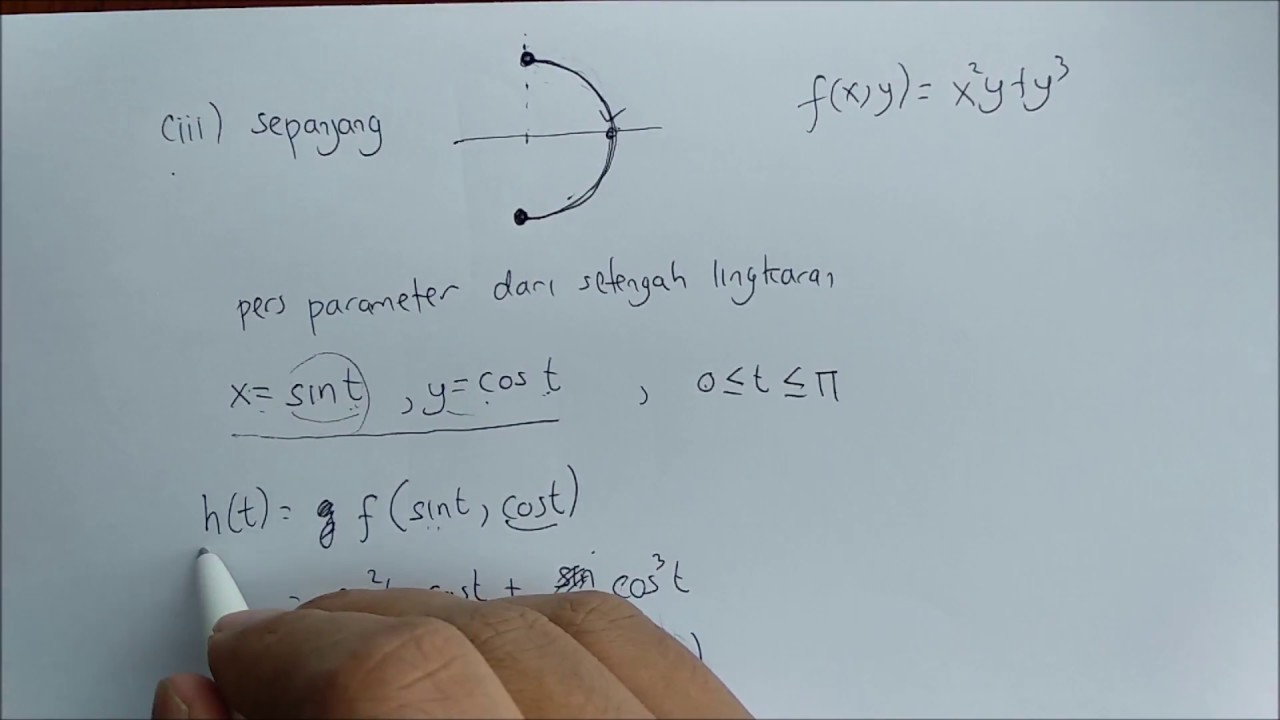 (iii) sepanjang
f(x,y) = x²y+y³
pers parameter dari setengah lingkaran
x= sin t , y= cos t , 0 ≤ t ≤ π
h(t) = f (sin t, cos t)
cost + cos³t
)